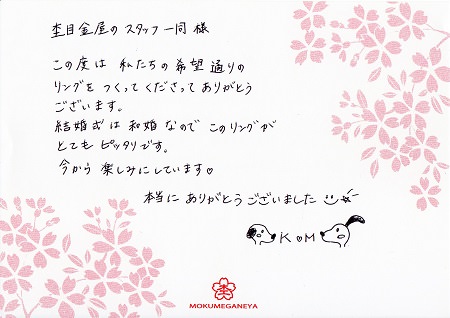 杢目金屋の スタッフ 一同 様
この度は 私たちの 希望 通りの
リングを つくって くださって ありがとう
ございます。
結婚式は 和婚 なので このリングが
とても ピッタリ です。
今から 楽しみにしています♡
本当に ありがとう ございました
K ♡ M
MOKUMEGANEYA